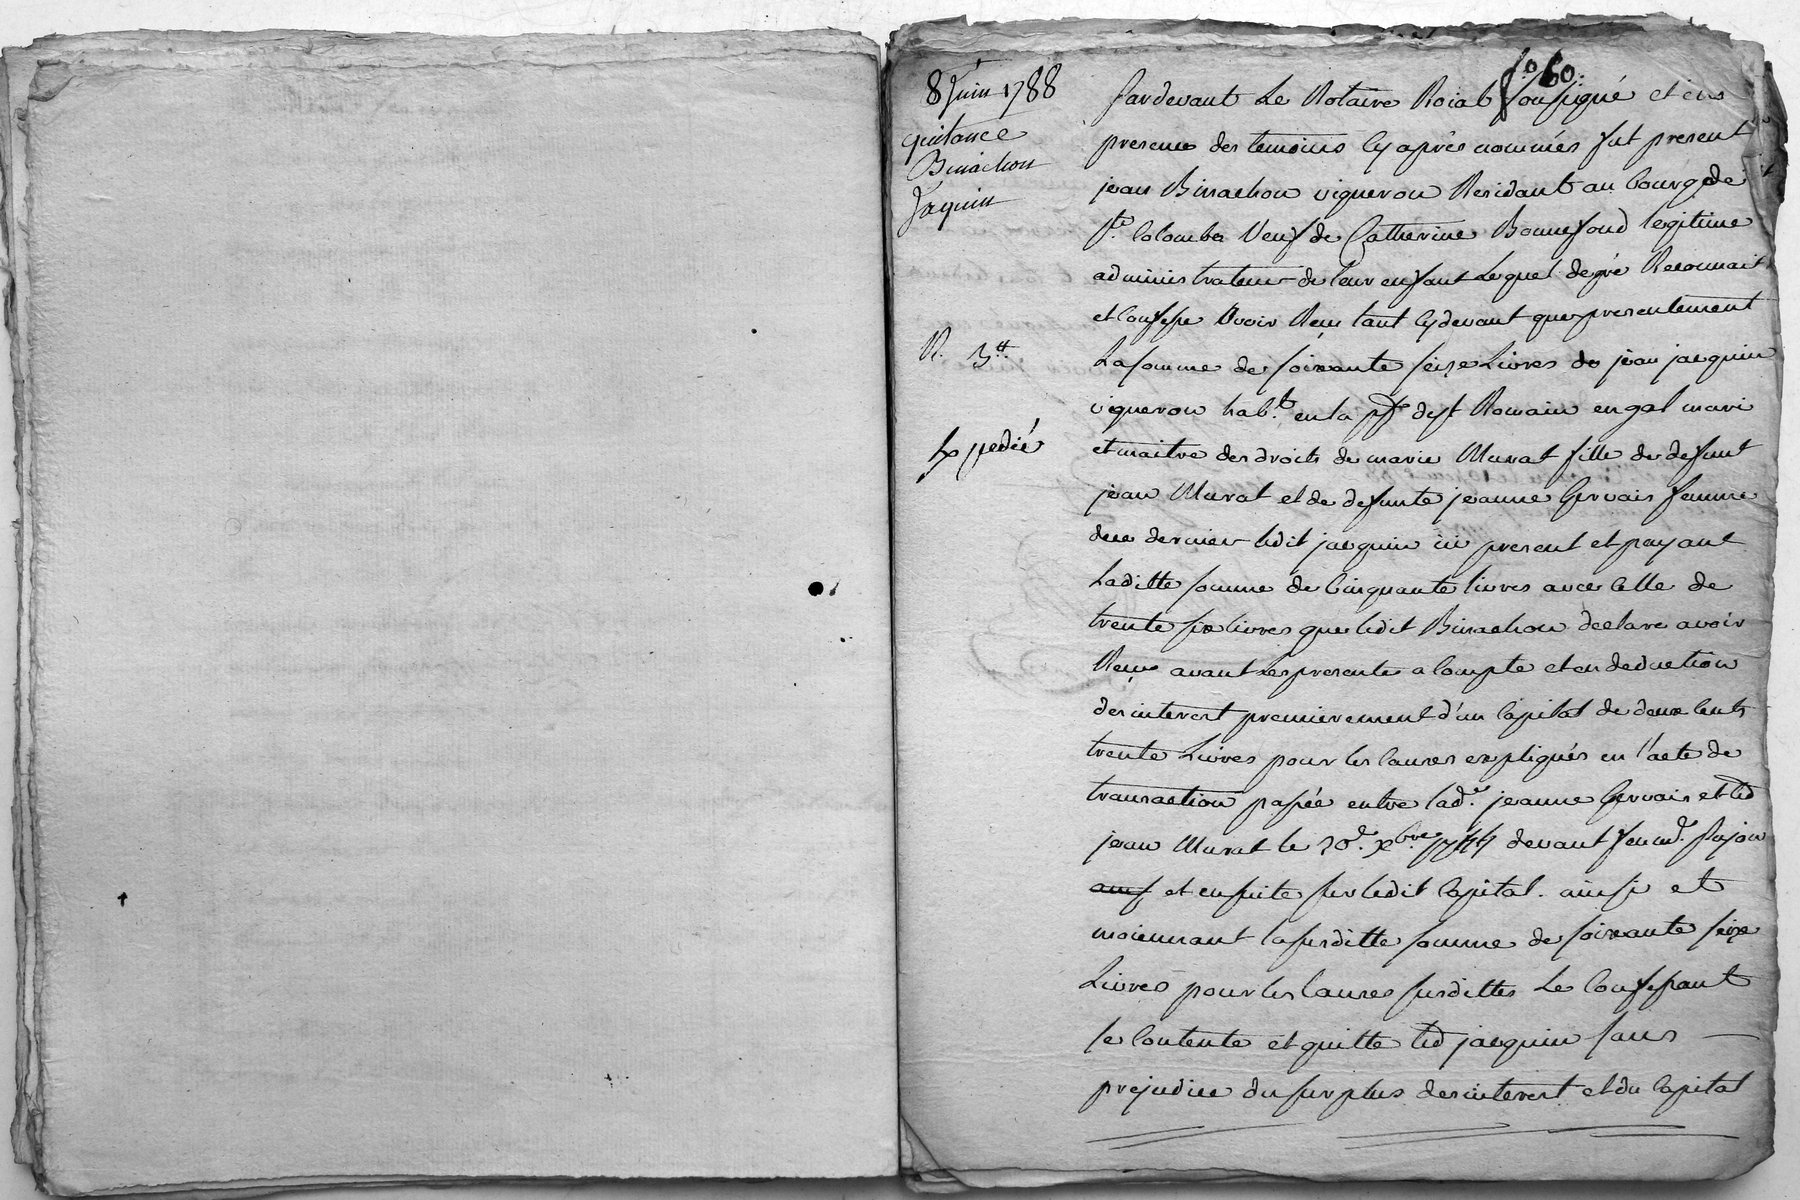 fo 60.
8 Juin 1788
quitance
Binachon
Jaquin
R. 3tt
Expedié
Pardevant Le Notaire Roial soussigné et en
presence des temoins Cy après nommés fut present
jean Binachon vigneron Residant au bourg de
Ste. Colombe Veuf de Catherine Bonnefond legitime
administrateur de leur enfant Lequel de gré Reconnait
et Confesse Avoir Reçu tant Cy devant que presentement
La somme de soixante seize Livres de jean jacquin
vigneron habt. en la psse de st Romain en gal mari
et maitre des droits de marie Murat fille de defunt
jean Murat et de defunte jeanne Gervais femme
dernier ledit jacquin ici present et payant
Laditte somme de Cinquante livres avec Celle de
trente six livres que ledit Binachon declare avoir
Reçue avant les presentes a Compte et en deduction
des interest premierement d'un Capital de deux Cents
trente Livres pour les Causes expliqués en l'acte de
transaction passée entre lade. jeanne Gervais et led
jean Murat le xbre devant feu me. Pajon
et ensuite sur ledit Capital. ainsi et
moiennant la susditte somme de soixante seize
Livres pour les Causes susdittes Le Confessant
se Contente et quitte led jacquin sans
prejudice du surplus des interest et du Capital